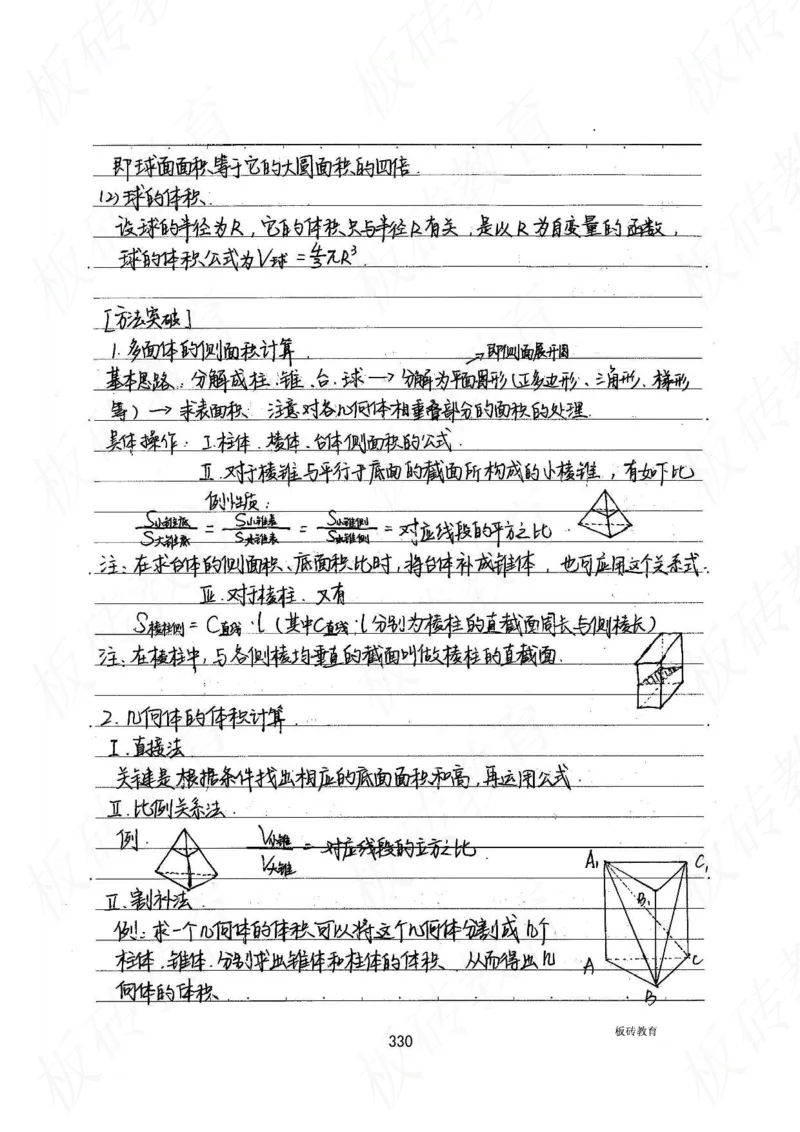 即球面面积等于它的大圆面积的四倍.
(2)球的体积.
设球的半径为R,它的体积只与半径R有关,是以R为自变量的函数,
球的体积公式为V球=4/3πR³.
[方法突破]
1.多面体的侧面积计算.
→即侧面展开图
基本思路:分解成柱、锥、台、球→分解为平面图形(正多边形、三角形、梯形
等)→求表面积.注意对各几何体相重叠部分的面积的处理.
具体操作:Ⅰ.柱体、棱体、台体侧面积的公式.
Ⅱ.对于棱锥与平行于底面的截面所构成的小棱锥,有如下比
例性质:
S小锥底/S大锥底=S小锥表/S大锥表=S小锥侧/S大锥侧=对应线段的平方之比
注:在求台体的侧面积、底面积比时,将台体补成锥体,也可应用这个关系式.
Ⅲ.对于棱柱,又有
S棱柱侧=C直线·l(其中C直线·l分别为棱柱的直截面周长与侧棱长)
注:在棱柱中,与各侧棱均垂直的截面叫做棱柱的直截面.
2.几何体的体积计算.
Ⅰ.直接法
关键是根据条件找出相应的底面面积和高,再运用公式.
Ⅱ.比例关系法.
例.
V小锥/V大锥=对应线段的立方之比.
Ⅱ.割补法.
例:求一个几何体的体积可以将这个几何体分割成几个
柱体、锥体.分别求出锥体和柱体的体积,从而得出几
何体的体积.
A₁
C₁
B₁
A
C
B
板砖教育
330